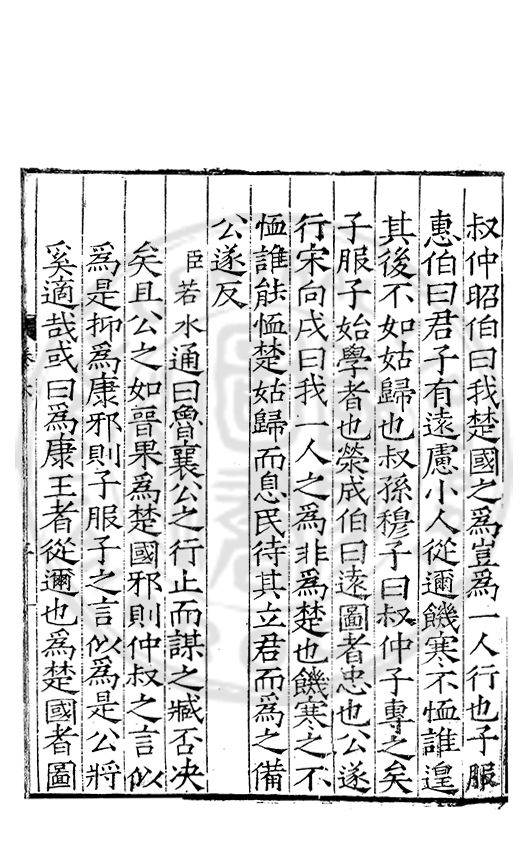 叔仲昭伯曰我楚國之爲豈爲一人行也子服
惠伯曰君子有遠慮小人從邇饑寒不恤誰遑
其後不如姑歸也叔孫穆子曰叔仲子專之矣
子服子始學者也榮成伯曰遠圖者忠也公遂
行宋向戌曰我一人之爲非爲楚也饑寒之不
恤誰能恤楚姑歸而息民待其立君而爲之備
公遂反
臣若水通曰魯襄公之行止而謀之臧否决
矣且公之如晉果爲楚國邪則仲叔之言似
爲是抑爲康邪則子服子之言似爲是公將
奚適哉或曰爲康王者從邇也爲楚國者圖